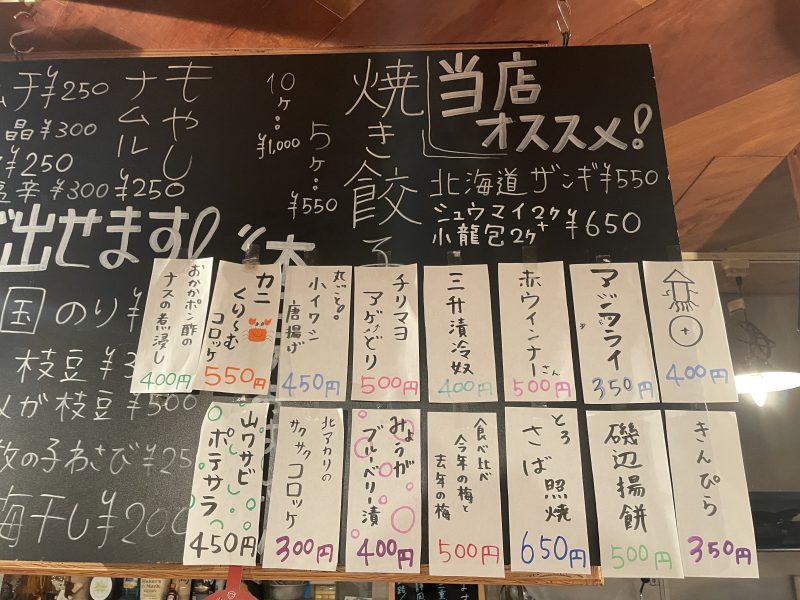 当店
オススメ!
北海道ザンギ¥550
シュウマイ2ケ+
小龍包2ケ ¥650
焼き餃子
5ケ:¥550
10ケ:¥1,000
もやし
ナムル
¥250
¥250
¥300
¥250
¥300
出せます!
国のり
枝豆
が枝豆¥500
数の子わさび¥25
梅干し¥200
400円
アジフライ
350円
赤ウィンナーさん
500円
三升漬冷奴
400円
チリマヨ
アゲどり
500円
丸ごと。
小イワシ
唐揚げ
450円
カニ
くり〜む
コロッケ
550円
おかかポン酢の
ナスの煮浸し
400円
きんぴら
350円
磯辺揚餅
500円
とろ
さば照焼
650円
食べ比べ
今年の梅と
去年の梅
500円
みょうが
ブルーベリー漬
400円
北アカリの
サクサクコロッケ
300円
山ワサビ
ポテサラ
450円